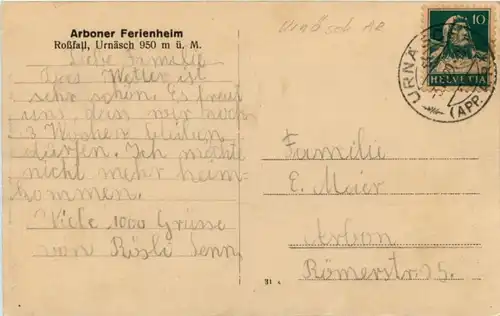 Arboner Ferienheim
Roßfall, Urnäsch 950 m ü. M.
Urnäsch AR
10
HELVETIA
URNÄ
(APP.
Liebe Familie
Das Wetter ist
sehr schön. Es freut
uns, dass wir noch
3 Wochen bleiben
dürfen. Ich möchte
nicht mehr heim-
kommen.
Viele 1000 Grüsse
von Rösli Senn
Familie
E. Maier
Arbon
Römerstr.
31